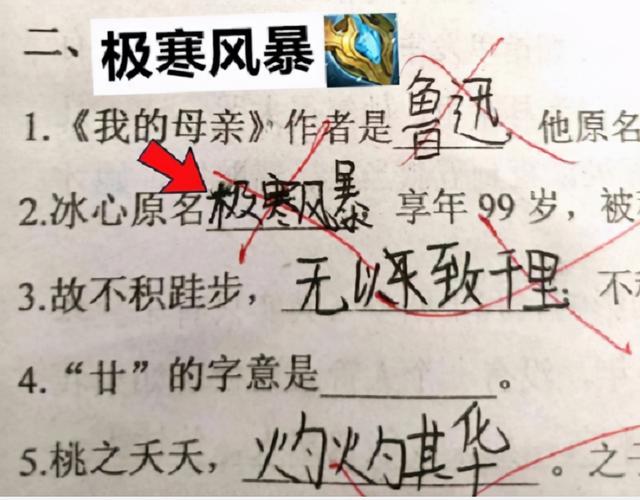 二、极寒风暴
1.《我的母亲》作者是鲁迅，他原名
2.冰心原名极寒风暴 享年 99 岁，被
3.故不积跬步，无以来致千里；不
4.“廿”的字意是。
5.桃之夭夭，灼灼其华。之